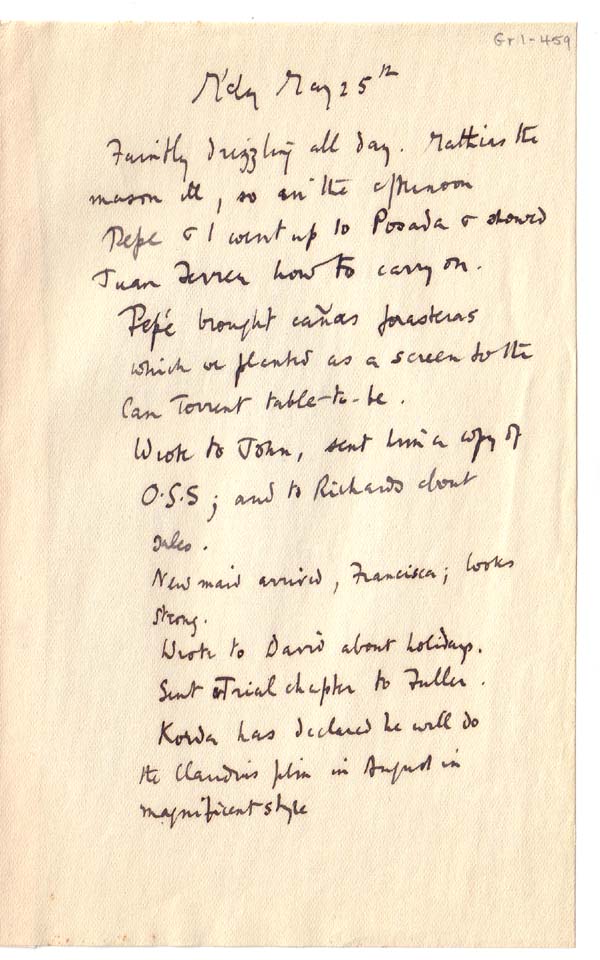 Gr1-459
M'dy May 25th
Faintly drizzling all day. Mathias the
mason ill, so in the afternoon
Pepe & I went up to Posada & showed
Juan Ferrer how to carry on.
Pepé brought cañas forasteras
which we planted as a screen to the
Can Torrent table-to-be.
Wrote to John, sent him a copy of
O.S.S; and to Richards about
sales.
New maid arrived, Francisca; looks
strong.
Wrote to David about holidays.
Sent Trial chapter to Fuller.
Korda has declared he will do
the Claudius film in August in
magnificent style